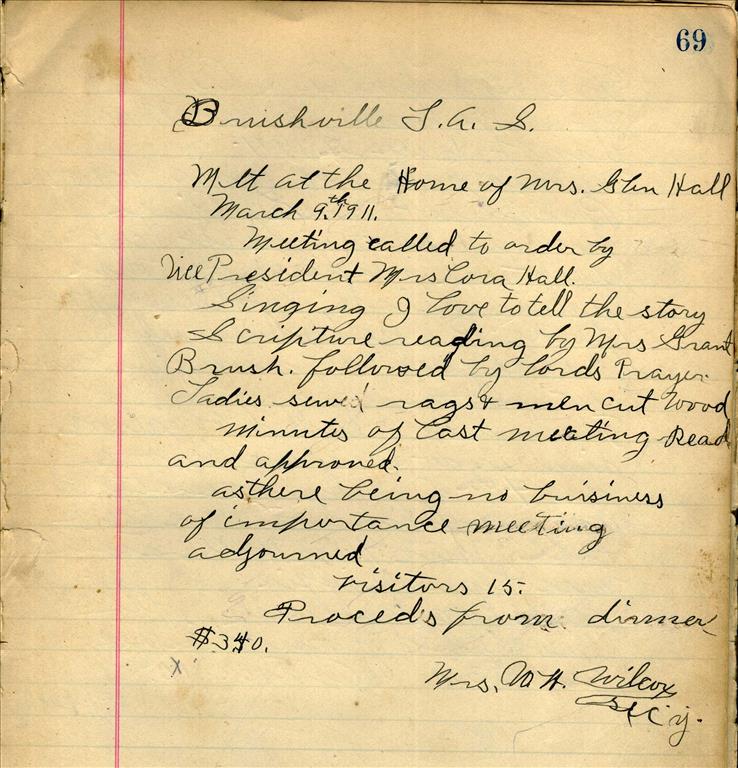 69
Brushville L. A. S.
Mett at the Home of Mrs. Glen Hall
March 9.th 1911.
Meeting called to order by
Vice President Mrs Cora Hall.
Singing I love to tell the story
Scripture reading by Mrs Grant
Brush. followed by lords Prayer.
Ladies sewed rags & men cut wood
minutes of last meeting Read
and approved.
as there being no buisiness
of importance meeting
adjourned
visitors 15.
Proceeds from dinner
$3.40.
Mrs. W. H. Wilcox
Sec'y.